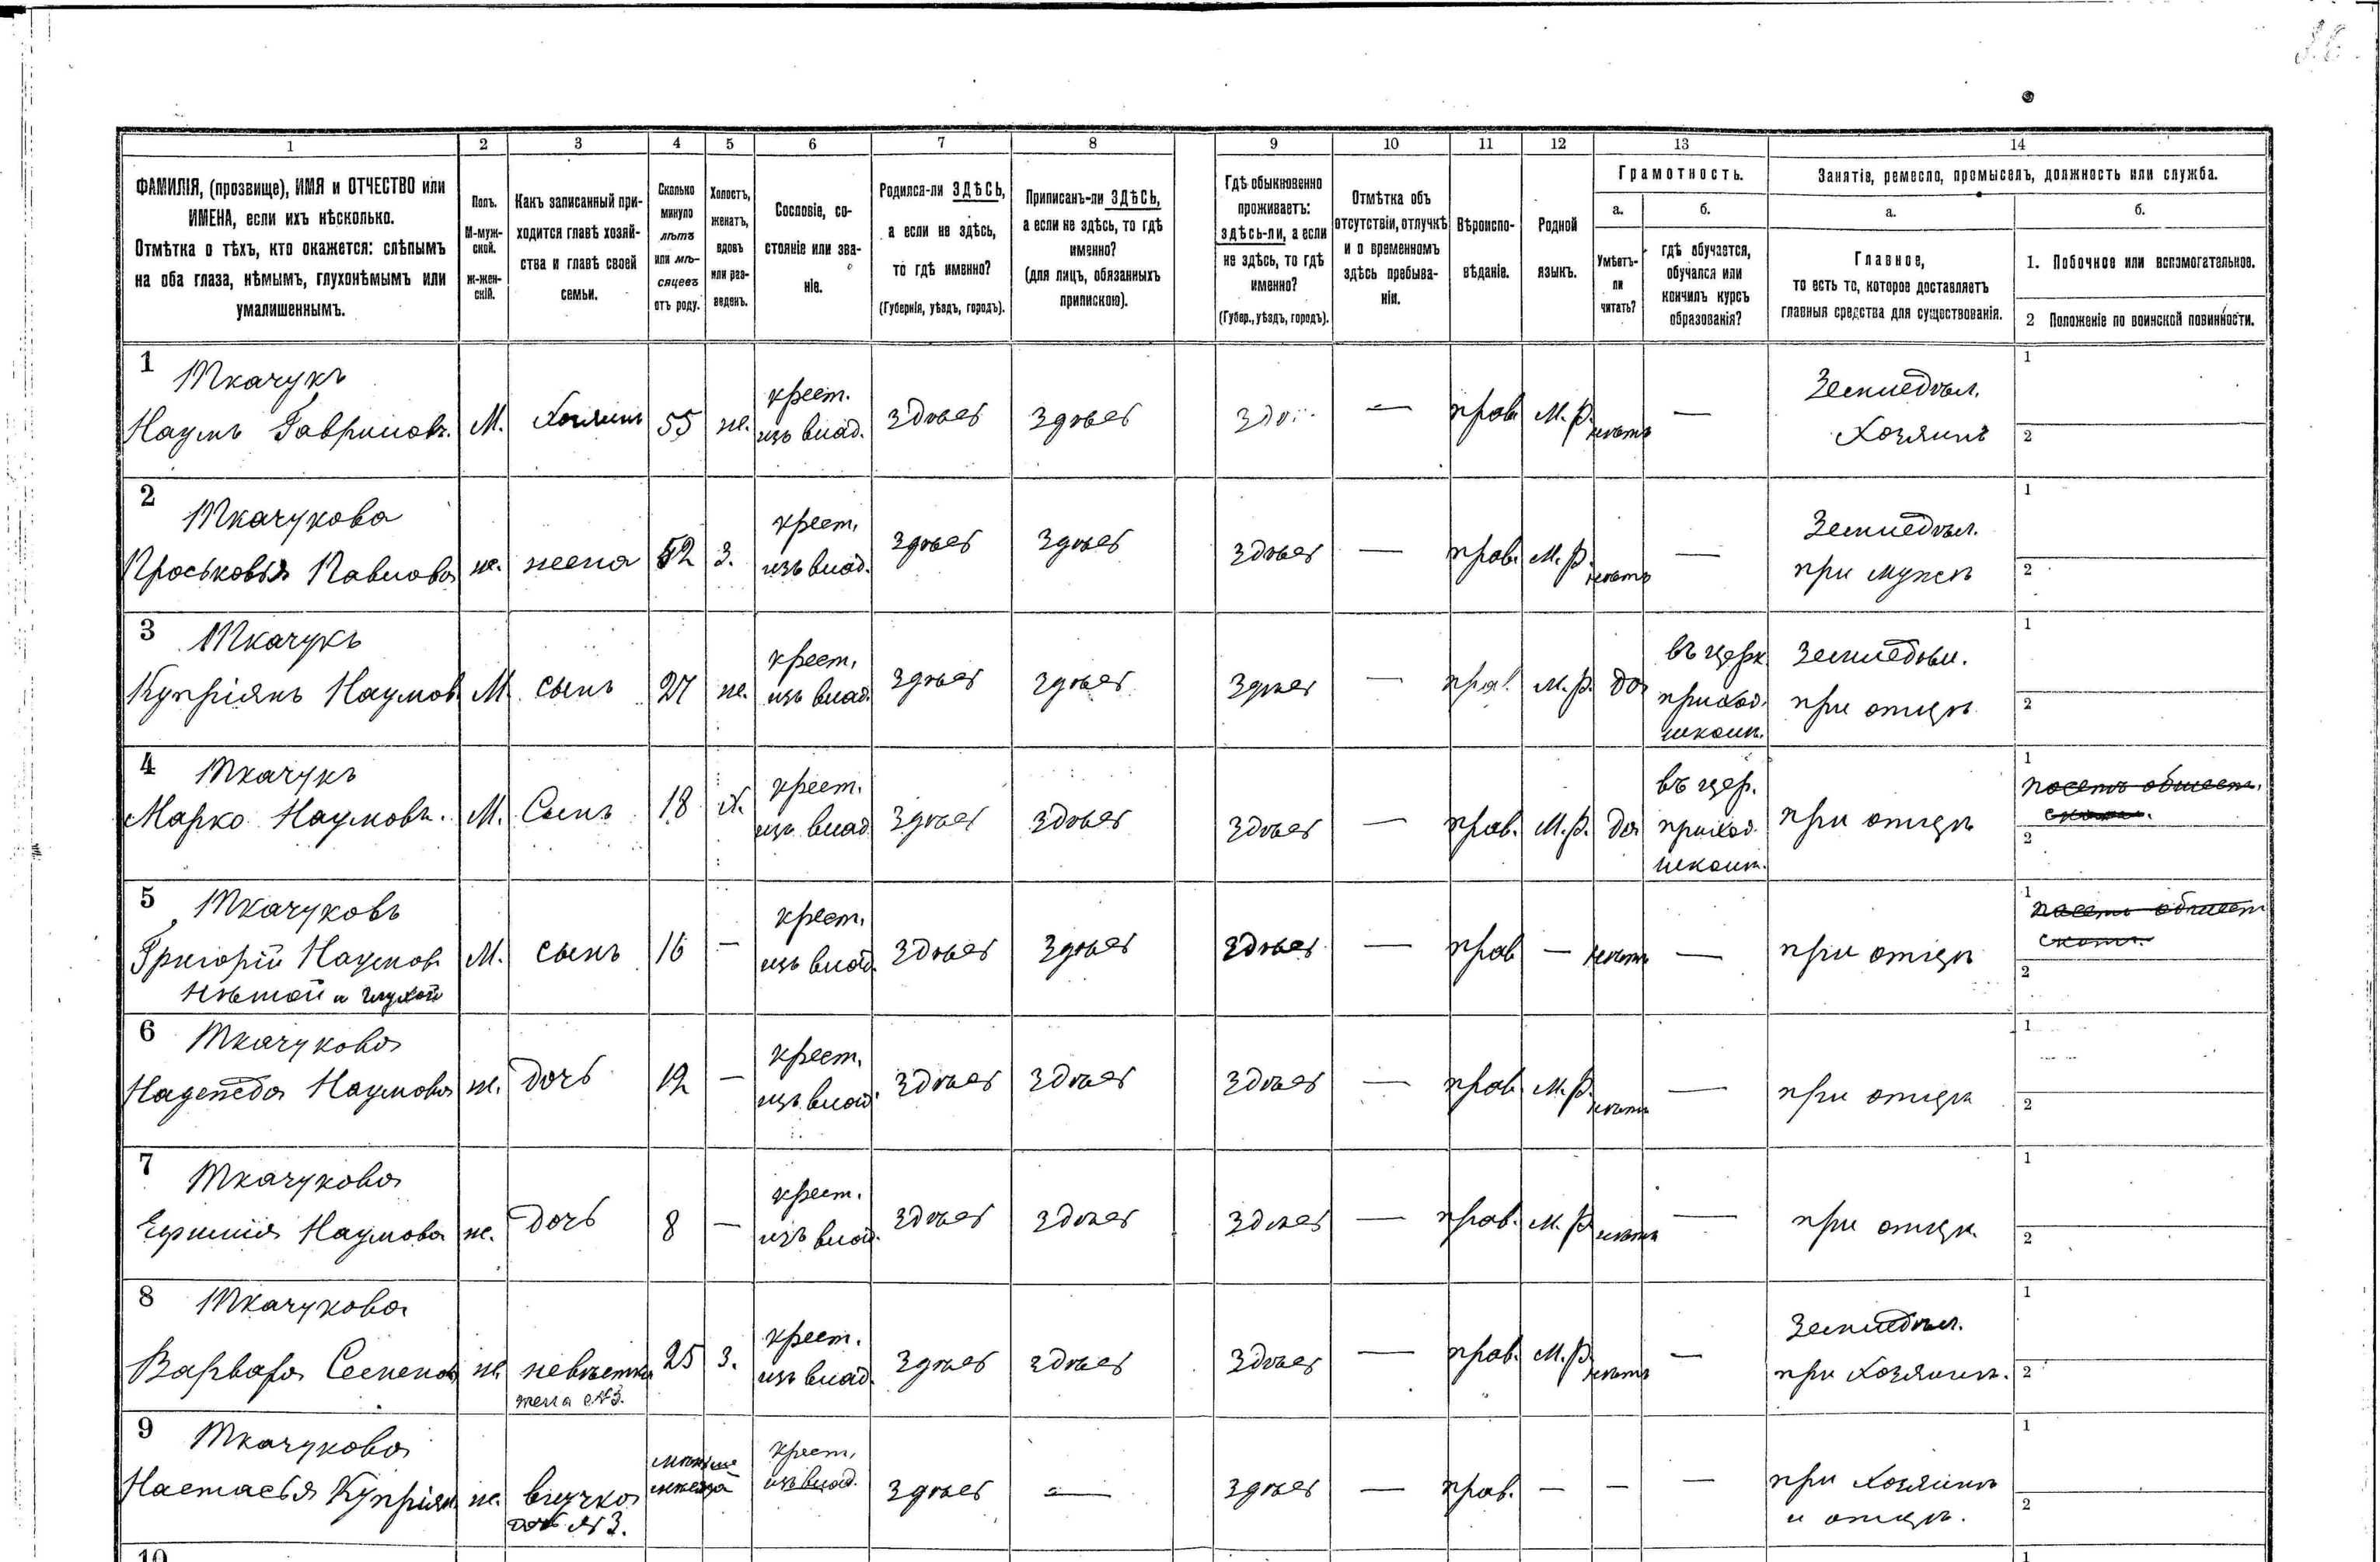 1 2 3 4 5 6 7 8 9 10 11 12 13 14
ФАМИЛІЯ, (прозвище), ИМЯ и ОТЧЕСТВО или
ИМЕНА, если ихъ нѣсколько.
Отмѣтка о тѣхъ, кто окажется: слѣпымъ
на оба глаза, нѣмымъ, глухонѣмымъ или
умалишеннымъ.
Полъ.
М-муж-
ской.
Ж-жен-
скій.
Какъ записанный при-
ходится главѣ хозяй-
ства и главѣ своей
семьи.
Сколько
минуло
лѣтъ
или мѣ-
сяцевъ
отъ роду.
Холостъ,
женатъ,
вдовъ
или раз-
веденъ.
Сословіе, со-
стояніе или зва-
ніе.
Родился-ли ЗДѢСЬ,
а если не здѣсь,
то гдѣ именно?
(Губернія, уѣздъ, городъ).
Приписанъ-ли ЗДѢСЬ,
а если не здѣсь, то гдѣ
именно?
(для лицъ, обязанныхъ
припискою).
Гдѣ обыкновенно
проживаетъ:
здѣсь-ли, а если
не здѣсь, то гдѣ
именно?
(Губер., уѣздъ, городъ).
Отмѣтка объ
отсутствіи, отлучкѣ
и о временномъ
здѣсь пребыва-
ніи.
Вѣроиспо-
вѣданіе.
Родной
языкъ.
Грамотность.
а.
Умѣетъ-
ли
читать?
б.
гдѣ обучается,
обучался или
кончилъ курсъ
образованія?
Занятіе, ремесло, промыселъ, должность или служба.
а.
Главное,
то есть то, которое доставляетъ
главныя средства для существованія.
б.
1. Побочное или вспомогательное.
2 Положеніе по воинской повинности.
1 Ткачукъ
Наумъ Гавриловъ. М. Хозяинъ 55 ж.
крест.
изъ влад.
здѣсь здѣсь — прав. М. Р. нѣтъ —
Земледѣл.
Хозяинъ
1
2
2 Ткачукова
Проськовья Павлова ж. жена 52 з.
крест.
изъ влад.
здѣсь здѣсь здѣсь — прав. М. Р. нѣтъ —
Земледѣл.
при мужѣ
1
2
3 Ткачукъ
Купріянъ Наумов М. сынъ 27 ж.
крест.
изъ влад.
здѣсь здѣсь здѣсь — прав. М. Р. да
въ церк.
приход.
школѣ.
Земледѣл.
при отцѣ
1
2
4 Ткачукъ
Марко Наумовъ. М. Сынъ 18 х.
крест.
изъ влад.
здѣсь здѣсь здѣсь — прав. М. Р. да
въ цер.
приход.
школѣ.
при отцѣ
1
пасетъ общест.
скотъ.
2
5 Ткачуковъ
Григорій Наумов М. сынъ 16 —
Нѣмой и глухой
крест.
изъ влад.
здѣсь здѣсь здѣсь — прав — нѣтъ —
при отцѣ
1
пасетъ общест
скотъ.
2
6 Ткачукова
Надежда Наумова ж. дочь 12 —
крест.
изъ влад.
здѣсь здѣсь здѣсь — прав. М. Р. нѣтъ —
при отцѣ
1
2
7 Ткачукова
Наумова ж. дочь 8 —
крест.
изъ влад.
здѣсь здѣсь здѣсь — прав. М. Р. нѣтъ —
при отцѣ.
1
2
8 Ткачукова
Варвара Семенов ж. невѣстка 25 з.
жена №3.
крест.
изъ влад.
здѣсь здѣсь здѣсь — прав. М. Р. нѣтъ —
Земледѣл.
при хозяинѣ.
1
2
9 Ткачукова
Настасья Купріян ж. внучка
дочь №3.
крест.
изъ влад.
здѣсь — здѣсь — прав. — — —
при хозяинѣ
и отцѣ.
1
2
10
1